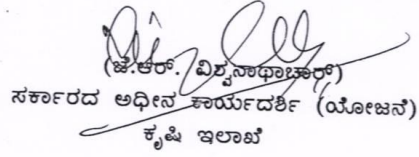 (ಜೆ.ಆರ್. ವಿಶ್ವನಾಥಾಚಾರ್)
ಸರ್ಕಾರದ ಅಧೀನ ಕಾರ್ಯದರ್ಶಿ (ಯೋಜನೆ)
ಕೃಷಿ ಇಲಾಖೆ